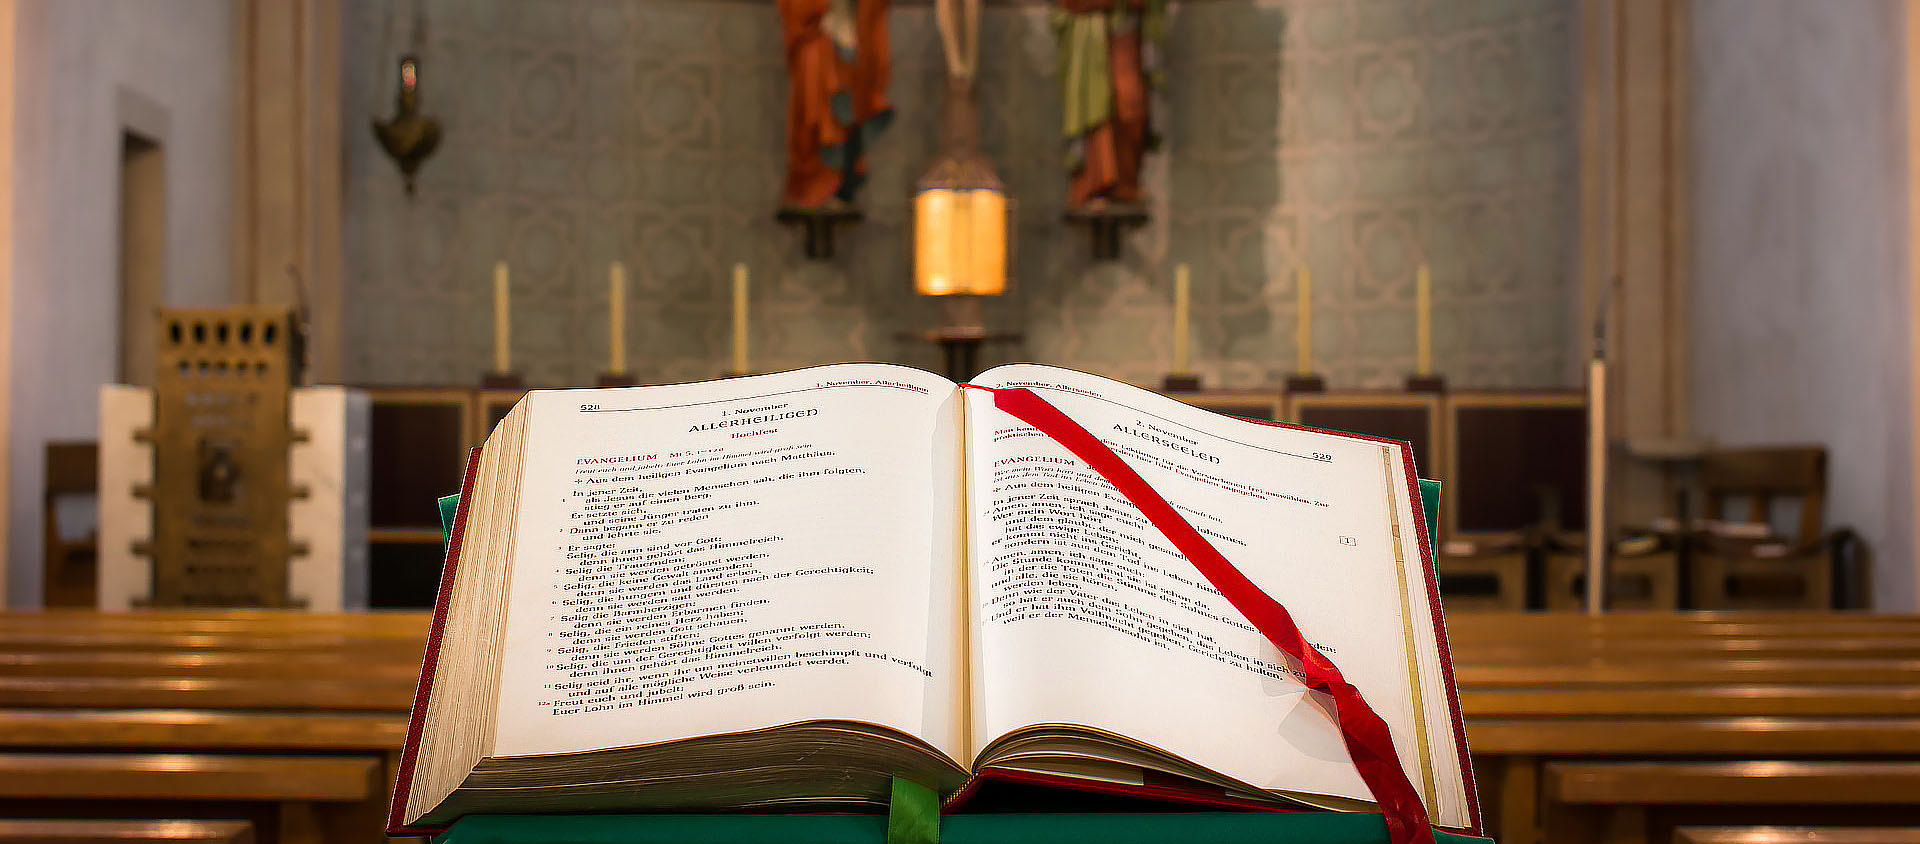 528
1. November, Allerheiligen
1. November
ALLERHEILIGEN
Hochfest
EVANGELIUM Mt 5, 1–12a
Freut euch und jubelt: Euer Lohn im Himmel wird groß sein.
+ Aus dem heiligen Evangelium nach Matthäus.
In jener Zeit,
1 als Jesus die vielen Menschen sah, die ihm folgten,
stieg er auf einen Berg.
Er setzte sich,
und seine Jünger traten zu ihm.
2 Dann begann er zu reden
und lehrte sie.
3 Er sagte:
Selig, die arm sind vor Gott;
denn ihnen gehört das Himmelreich.
4 Selig die Trauernden;
denn sie werden getröstet werden.
5 Selig, die keine Gewalt anwenden;
denn sie werden das Land erben.
6 Selig, die hungern und dürsten nach der Gerechtigkeit;
denn sie werden satt werden.
7 Selig die Barmherzigen;
denn sie werden Erbarmen finden.
8 Selig, die ein reines Herz haben;
denn sie werden Gott schauen.
9 Selig, die Frieden stiften;
denn sie werden Söhne Gottes genannt werden.
10 Selig, die um der Gerechtigkeit willen verfolgt werden;
denn ihnen gehört das Himmelreich.
11 Selig seid ihr, wenn ihr um meinetwillen beschimpft und verfolgt
und auf alle mögliche Weise verleumdet werdet.
12a Freut euch und jubelt:
Euer Lohn im Himmel wird groß sein.
2. November, Allerseelen
529
2. November
ALLERSEELEN
EVANGELIUM
Aus dem heiligen
In jener Zeit sprach Jesus zu
Amen, amen, ich sage euch:
Wer mein Wort hört
und dem glaubt, der mich gesandt
hat das ewige Leben;
er kommt nicht ins Gericht,
sondern ist aus dem Tod ins Leben
Amen, amen, ich
Die Stunde kommt, und sie ist schon da,
in der die Toten die Stimme des Sohnes Gottes
und alle, die sie hören,
werden leben.
Denn wie der Vater das Leben in sich hat,
so hat er auch dem Sohn gegeben, das Leben in sich zu
Und er hat ihm Vollmacht gegeben, Gericht zu halten,
weil er der Menschensohn ist.